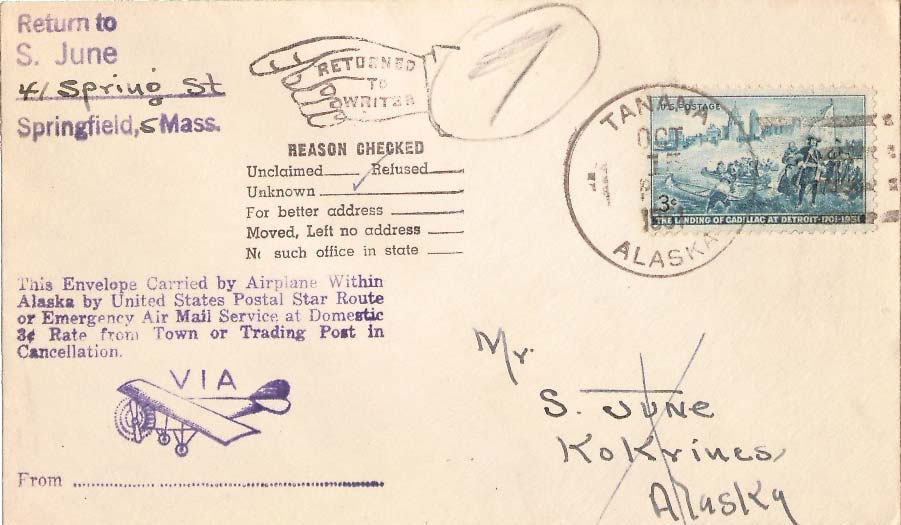 Return to
S. June
41 Spring St
Springfield, 5 Mass.
RETURNED
TO
WRITER
REASON CHECKED
Unclaimed Refused
Unknown
For better address
Moved, Left no address
No such office in state
This Envelope Carried by Airplane Within
Alaska by United States Postal Star Route
or Emergency Air Mail Service at Domestic
3¢ Rate from Town or Trading Post in
Cancellation.
VIA
From
TANANA
OCT
ALASKA
U.S. POSTAGE
3¢
THE LANDING OF CADILLAC AT DETROIT-1701-1951
Mr.
S. JUNE
KoKrines,
Alaska